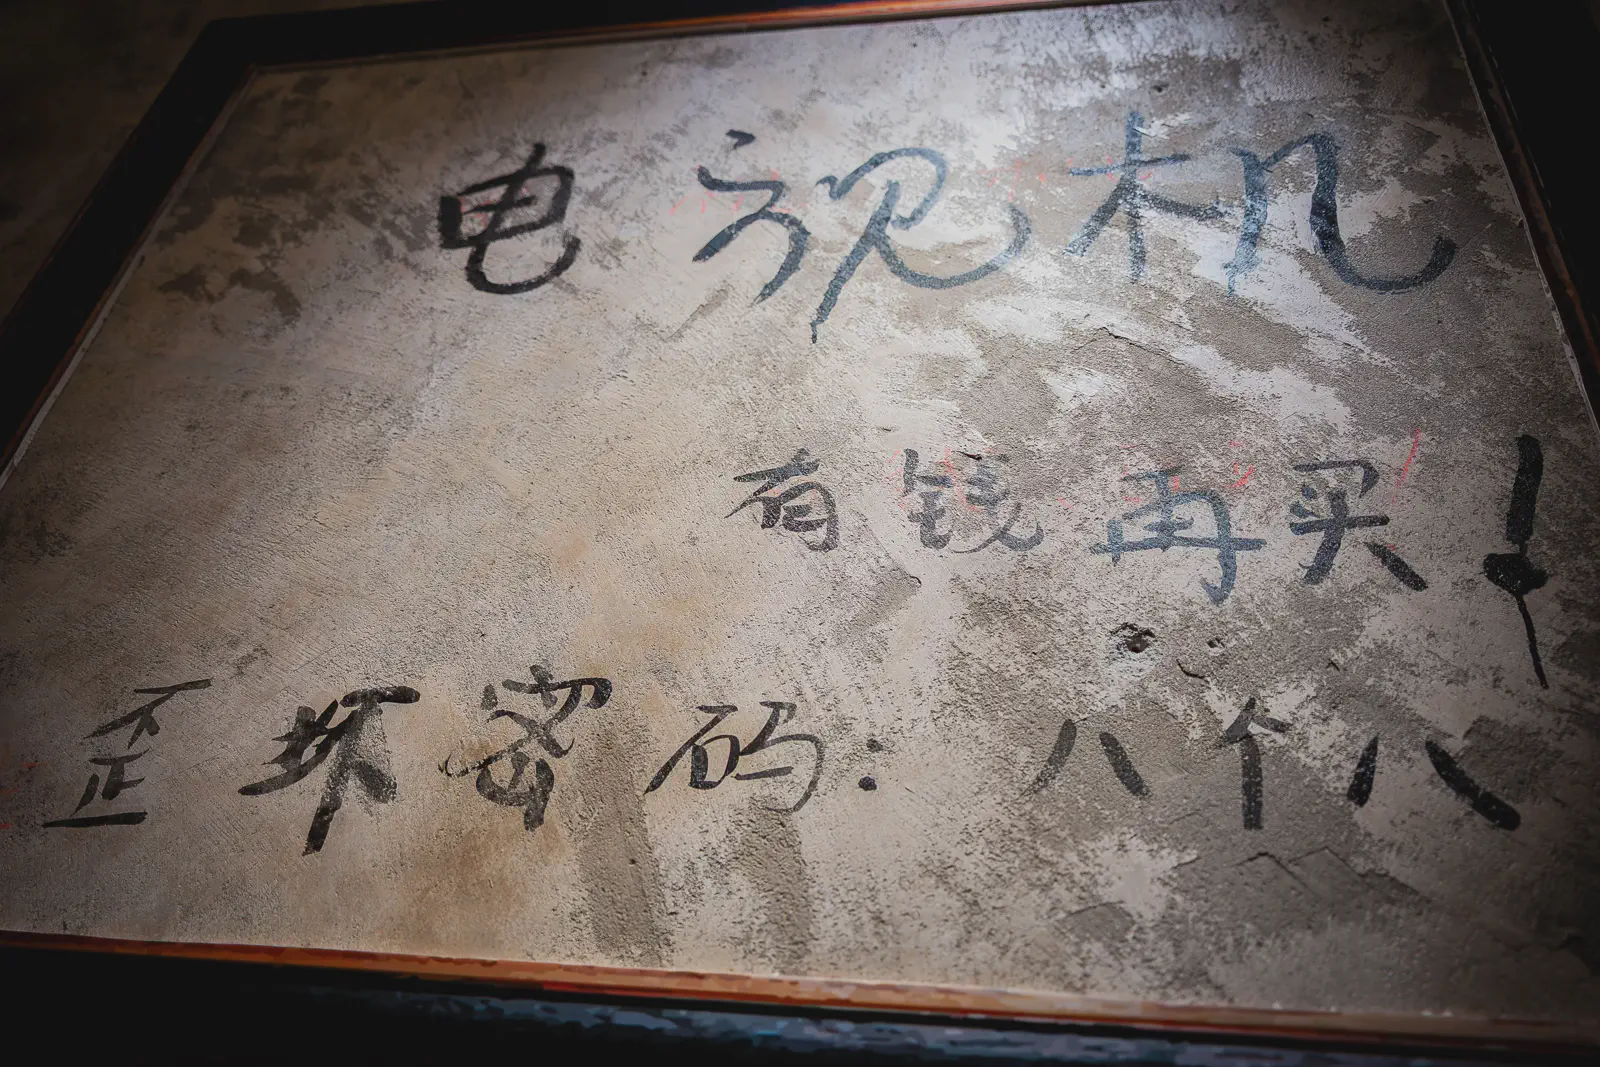 电视机
有钱再买！
歪坏密码：八个八